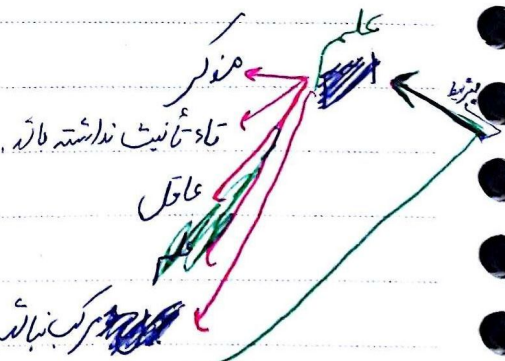 علم
بشرط
مذکر
تاء تأنیث نداشته باشد.
عاقل
مرکب نباشد